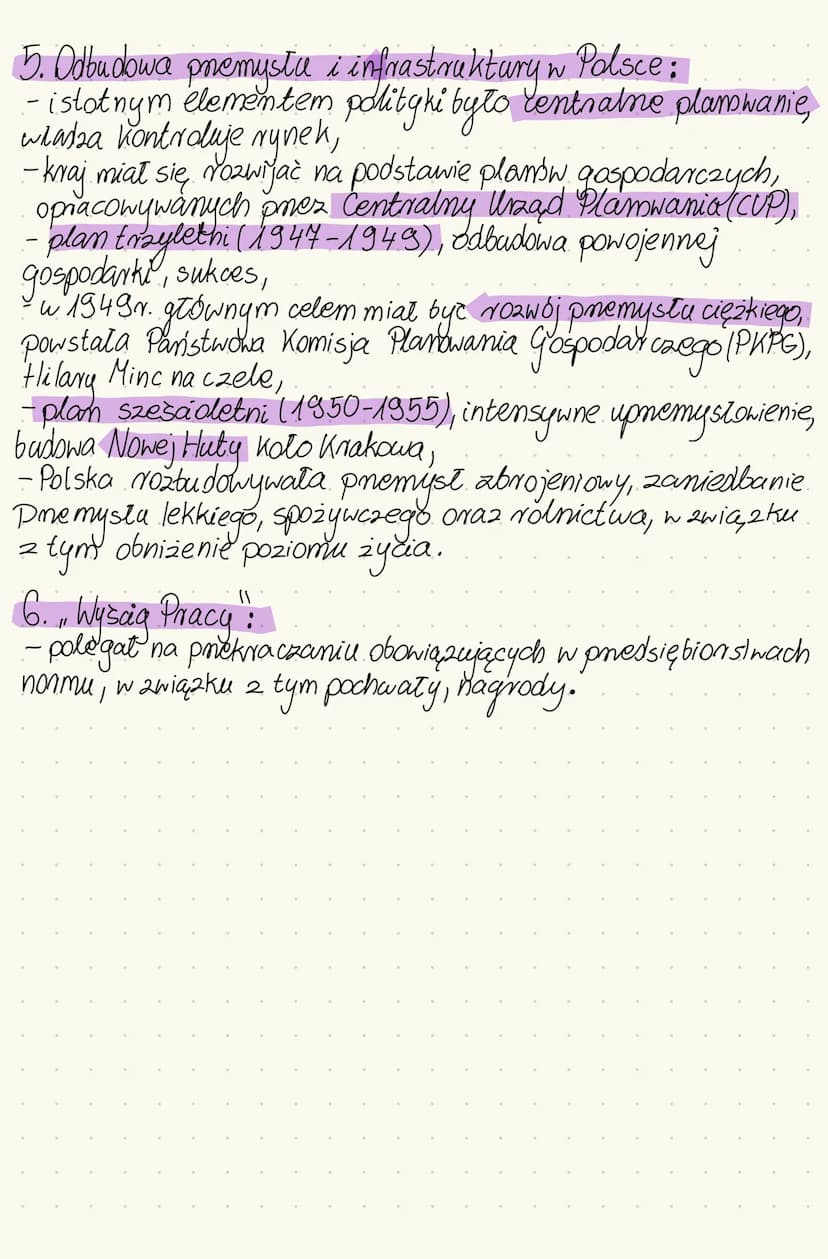 5. Odbudowa przemysłu i infrastruktury w Polsce:
- istotnym elementem polityki było centralne planowanie,
władza kontroluje rynek,
- kraj miał się rozwijać na podstawie planów gospodarczych,
opracowywanych przez Centralny Urząd Planowania (CUP),
- plan trzyletni (1947-1949), odbudowa powojennej
gospodarki, sukces,
- w 1949r. głównym celem miał być rozwój przemysłu ciężkiego,
powstała Państwowa Komisja Planowania Gospodarczego (PKPG),
Hilary Minc na czele,
- plan sześcioletni (1950-1955), intensywne uprzemysłowienie,
budowa Nowej Huty koło Krakowa,
- Polska rozbudowywała przemysł zbrojeniowy, zaniedbanie
przemysłu lekkiego, spożywczego oraz rolnictwa, w związku
z tym obniżenie poziomu życia.
6. „Wyścig Pracy":
- polegał na przekraczaniu obowiązujących w przedsiębiorstwach
normu, w związku z tym pochwały, nagrody.